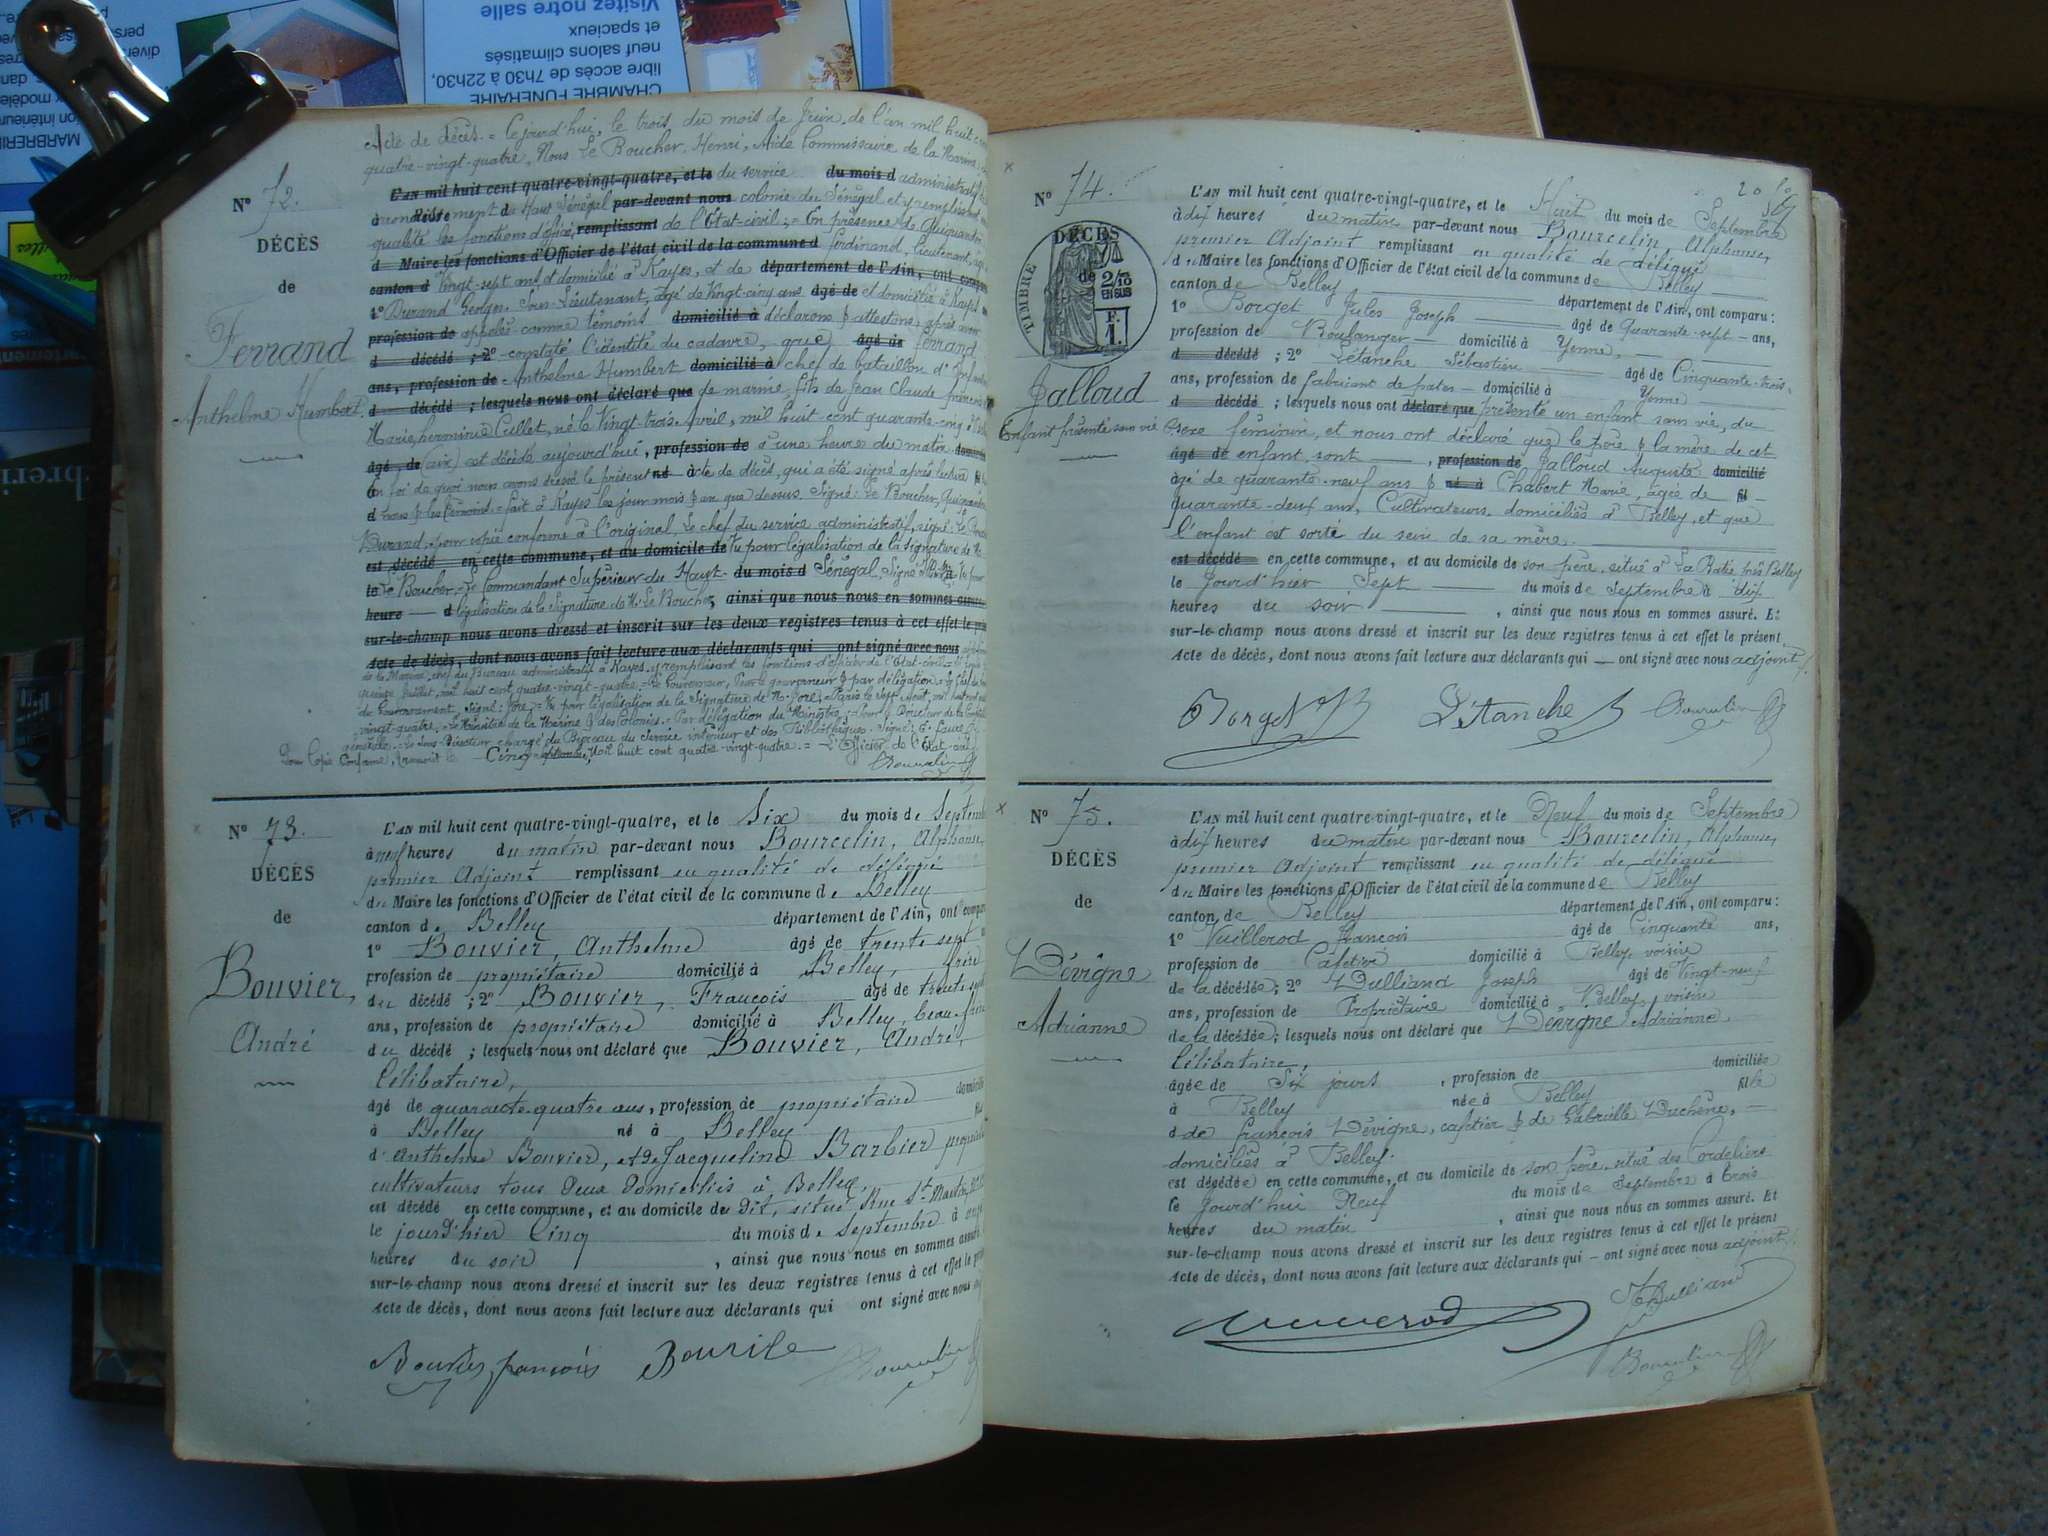 Visitez notre salle
et spacieux
neuf salons climatisés
libre accès de 7h30 à 22h30,
CHAMBRE FUNERAIRE
MARBRERIE
Acte de décès. = Cejourd'hui, le trois du mois de Juin de l'an mil huit cent
quatre-vingt-quatre, Nous Le Boucher, Henri, Aide Commissaire de la Marine
N° 72.
DÉCÈS
de
Ferrand
Anthelme Humbert
L'AN mil huit cent quatre-vingt-quatre, et le du service du mois d administratif
à arrondissement du Haut Sénégal par-devant nous colonie du Sénégal et y remplissant en
qualité les fonctions d'officier remplissant de l'Etat-civil; = En présence de Quiquandon
d Maire les fonctions d'Officier de l'état civil de la commune d Ferdinand, Lieutenant, âgé
canton d Vingt-sept ans, et domicilié à Kayes, et de département de l'Ain, ont comparu
1° Durand Georges, Sous-Lieutenant, âgé de Vingt-cinq ans âgé de et domicilié à Kayes
profession de appelés comme témoins domicilié à déclarons & attestons, après avoir
d décédé ; 2° constaté l'identité du cadavre, que âgé de Ferrand
ans, profession de Anthelme Humbert domicilié à chef de bataillon d'Infanterie
d décédé ; lesquels nous ont déclaré que de marine, fils de Jean Claude
Marie, herminie Cullet, né le Vingt-trois Avril, mil huit-cent quarante-cinq à
âgé de (ain) est décédé aujourd'hui, profession de à une heure du matin domicilié
En foi de quoi nous avons dressé le présent né acte de décès, qui a été signé après lecture
d nous & les témoins = fait à Kayes les jour mois & an que dessus. Signé: Le Boucher, Quiquandon
Durand, pour copie conforme à l'original, Le chef du service administratif, signé: Le Boucher
est décédé en cette commune, et au domicile de Vu pour légalisation de la signature de M.
le Le Boucher, Le Commandant Supérieur du Haut- du mois d Sénégal, signé
heure d légalisation de la Signature de M. Le Boucher, ainsi que nous nous en sommes assuré
sur-le-champ nous avons dressé et inscrit sur les deux registres tenus à cet effet le présent
Acte de décès, dont nous avons fait lecture aux déclarants qui ont signé avec nous
de la Marine, chef du Bureau administratif à Kayes, y remplissant les fonctions d'officier de l'Etat-civil
quinze Juillet, mil huit cent quatre-vingt-quatre. = Le Gouverneur, Pour le gouverneur & par délégation
du Gouvernement, signé: = Vu pour légalisation de la Signature de M. Paris le Sept Août, mil huit cent
vingt-quatre. = Le Ministre de la Marine & des Colonies. = Par délégation du Ministre. = Pour le Directeur de la Comptabilité
générale. = Le Sous-Directeur chargé du Bureau du Service intérieur et des Bibliothèques. Signé: E. Faure
Pour Copie Conforme, transcrit le Cinq septembre, Mil huit cent quatre-vingt-quatre. = L'Officier de l'Etat-civil
Bourcelin
N° 73.
DÉCÈS
de
Bouvier,
André
L'AN mil huit cent quatre-vingt-quatre, et le Six du mois de Septembre
à neuf heures du matin par-devant nous Bourcelin, Alphonse,
premier Adjoint remplissant en qualité de délégué
du Maire les fonctions d'Officier de l'état civil de la commune de Belley
canton de Belley département de l'Ain, ont comparu
1° Bouvier, Anthelme âgé de trente sept
profession de propriétaire domicilié à Belley, frère
du décédé ; 2° Bouvier, François âgé de trente
ans, profession de propriétaire domicilié à Belley, beau-frère
du décédé ; lesquels nous ont déclaré que Bouvier, André,
Célibataire,
âgé de quarante-quatre ans, profession de propriétaire domicilié
à Belley né à Belley
d'Anthelme Bouvier, et de Jacqueline Barbier
cultivateurs tous deux domiciliés à Belley,
est décédé en cette commune, et au domicile de dit, situé Rue St. Martin,
le jourd'hier Cinq du mois de Septembre à
heures du soir , ainsi que nous nous en sommes assuré.
sur-le-champ nous avons dressé et inscrit sur les deux registres tenus à cet effet le
Acte de décès, dont nous avons fait lecture aux déclarants qui ont signé avec nous
Bouvier françois Bouvier Bourcelin
20
N° 74.
DÉCÈS
de
TIMBRE
2/10
EN SUS
F.
1.
Jalloud
Enfant présenté sans vie
L'AN mil huit cent quatre-vingt-quatre, et le Huit du mois de Septembre
à dix heures du matin par-devant nous Bourcelin, Alphonse,
premier Adjoint remplissant en qualité de délégué
du Maire les fonctions d'Officier de l'état civil de la commune de Belley
canton de Belley département de l'Ain, ont comparu :
1° Borget Jules Joseph âgé de Quarante-sept ans,
profession de Boulanger domicilié à Yenne,
d décédé ; 2° Létanche Sébastien âgé de Cinquante-trois
ans, profession de fabricant de pates domicilié à Yenne
d décédé ; lesquels nous ont déclaré que présenté un enfant sans vie, du
sexe féminin, et nous ont déclaré que le père & la mère de cet
âgé de enfant sont , profession de Jalloud Auguste domicilié
âgé de quarante-neuf ans & né à Chabert Marie, âgée de fil
quarante-deux ans, Cultivateurs, domiciliés à Belley, et que
l'enfant est sorti du sein de sa mère.
est décédé en cette commune, et au domicile de son père, situé à La Ratie près Belley
le jourd'hier Sept du mois de Septembre à dix
heures du soir , ainsi que nous nous en sommes assuré. Et
sur-le-champ nous avons dressé et inscrit sur les deux registres tenus à cet effet le présent
Acte de décès, dont nous avons fait lecture aux déclarants qui ont signé avec nous adjoint
Borget L'Etanche Bourcelin
N° 75.
DÉCÈS
de
Dévigne
Adrianne
L'AN mil huit cent quatre-vingt-quatre, et le Neuf du mois de Septembre
à dix heures du matin par-devant nous Bourcelin, Alphonse,
premier Adjoint remplissant en qualité de délégué
du Maire les fonctions d'Officier de l'état civil de la commune de Belley
canton de Belley département de l'Ain, ont comparu :
1° Vuillerod François âgé de Cinquante ans,
profession de Cafetier domicilié à Belley, voisin
de la décédée; 2° Dulliand Joseph âgé de Vingt-neuf
ans, profession de Propriétaire domicilié à Belley, voisin
de la décédée; lesquels nous ont déclaré que Dévigne Adrianne,
Célibataire,
âgée de Six jours , profession de domiciliée
à Belley née à Belley fille
d de François Dévigne, cafetier & de Gabrielle Duchêne,
domiciliés à Belley.
est décédée en cette commune, et au domicile de son père, situé des Cordeliers
le jourd'hui Neuf du mois de Septembre à trois
heures du matin , ainsi que nous nous en sommes assuré. Et
sur-le-champ nous avons dressé et inscrit sur les deux registres tenus à cet effet le présent
Acte de décès, dont nous avons fait lecture aux déclarants qui ont signé avec nous adjoint
Vuillerod Dulliand
Bourcelin